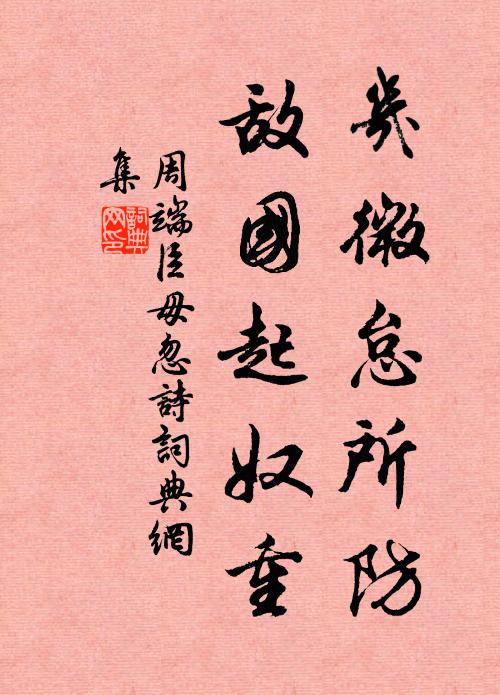 幾微怠所防
敌國起奴重
周端臣毋忽詩詞典網
集
詞典
网印